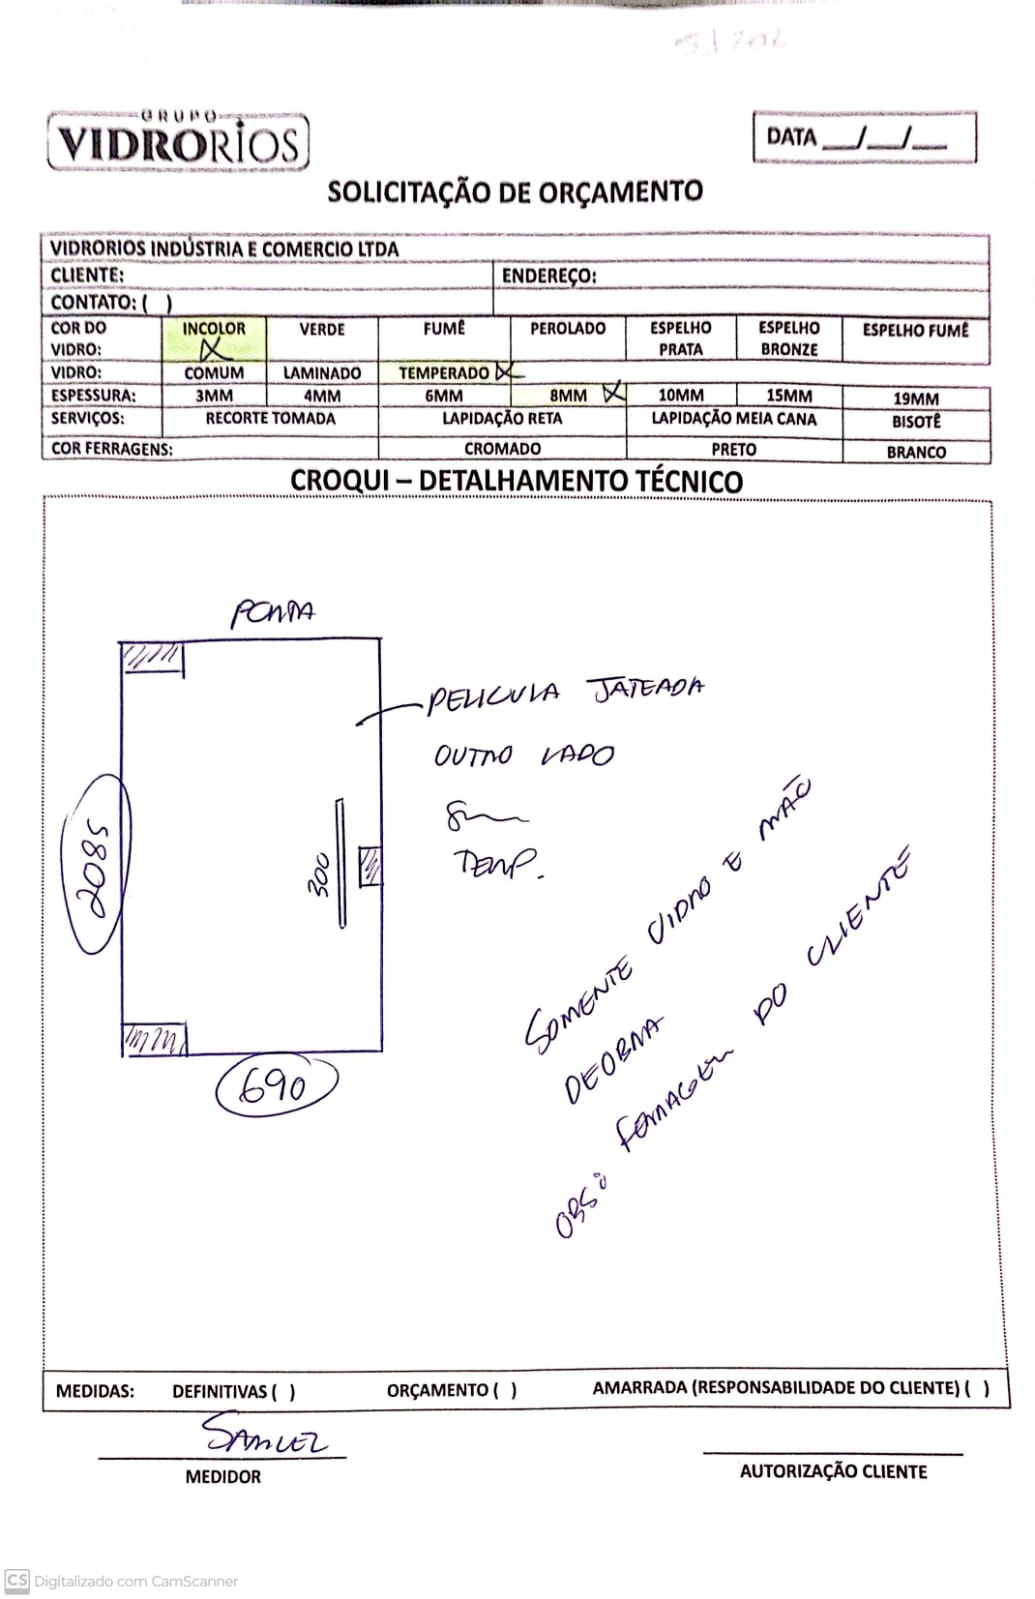 GRUPO
VIDRORIOS
DATA __/__/__
SOLICITAÇÃO DE ORÇAMENTO
VIDRORIOS INDÚSTRIA E COMERCIO LTDA
CLIENTE: ENDEREÇO:
CONTATO: ( )
COR DO VIDRO: INCOLOR X VERDE FUMÊ PEROLADO ESPELHO PRATA ESPELHO BRONZE ESPELHO FUMÊ
VIDRO: COMUM LAMINADO TEMPERADO X
ESPESSURA: 3MM 4MM 6MM 8MM X 10MM 15MM 19MM
SERVIÇOS: RECORTE TOMADA LAPIDAÇÃO RETA LAPIDAÇÃO MEIA CANA BISOTÊ
COR FERRAGENS: CROMADO PRETO BRANCO
CROQUI – DETALHAMENTO TÉCNICO
PORTA
PELICULA JATEADA
OUTRO LADO
8mm
TEMP.
2085
300
690
SOMENTE VIDRO E MÃO
DEOBRA
OBS: FERRAGEM DO CLIENTE
MEDIDAS: DEFINITIVAS ( ) ORÇAMENTO ( ) AMARRADA (RESPONSABILIDADE DO CLIENTE) ( )
SAMUEL
MEDIDOR
AUTORIZAÇÃO CLIENTE
CS Digitalizado com CamScanner